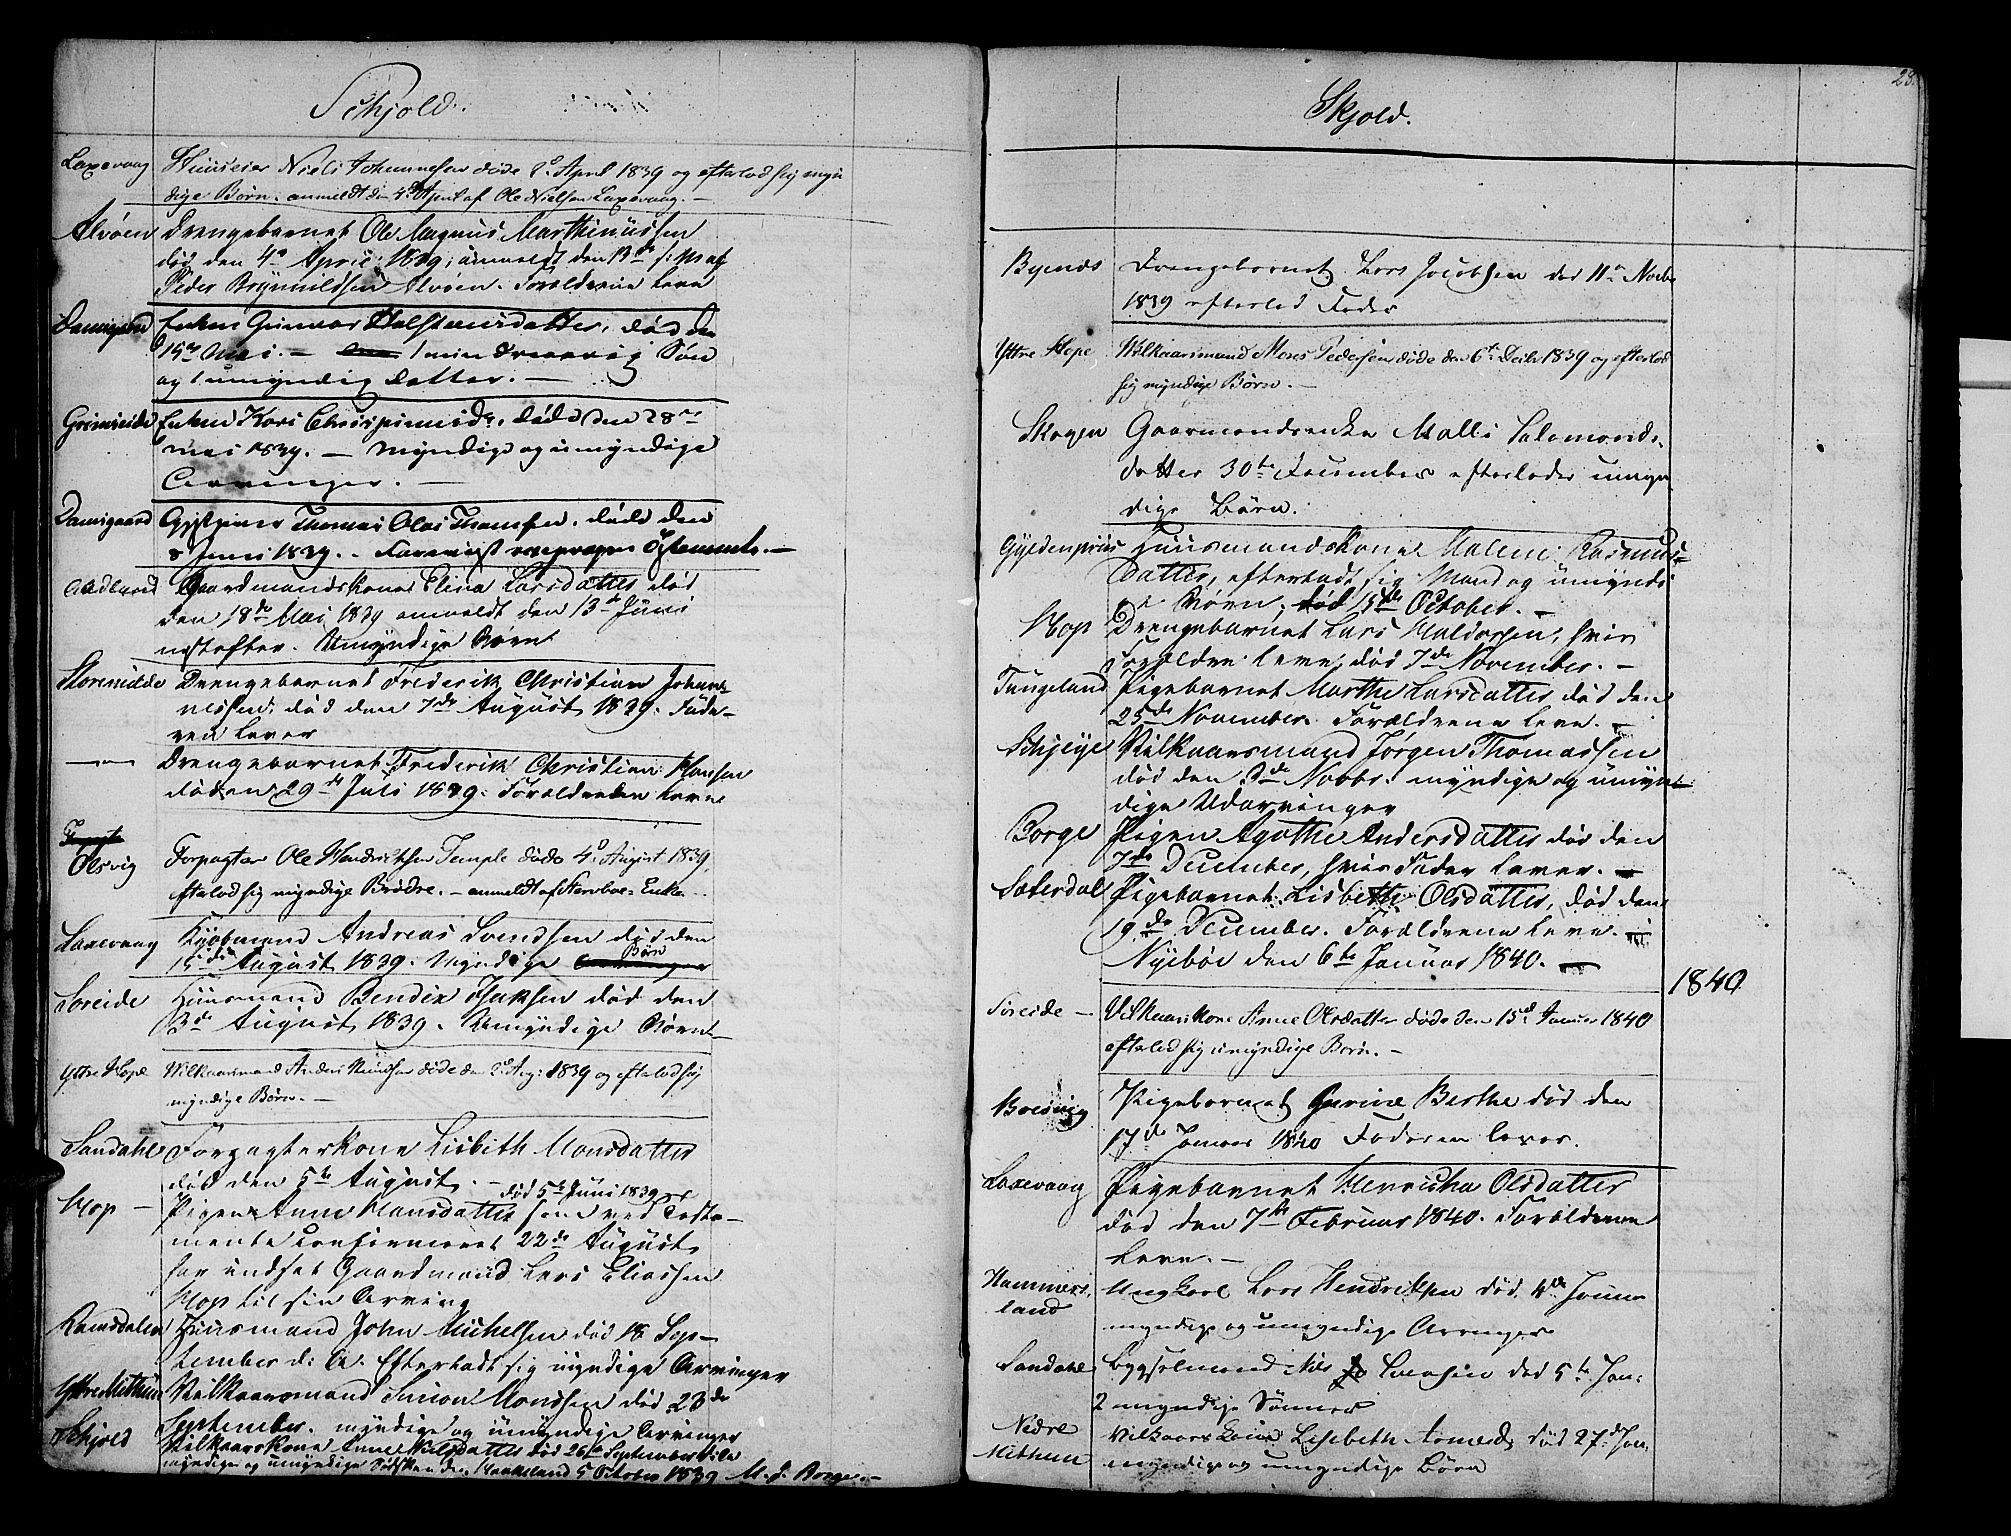 Schjold.
Laxevaag Huuseier Niels Johannesen døde 2d April 1839 og efterlod sig myn
dige Børn. anmeldt den 4de April af Ole Nielsen Laxevaag. –
Alvøen Drengebarnet Ole Magnus Marthinussen
død den 4de April 1839, anmeldt den 13de s: M: af
Peder Brynnildsen Alvøen. Forældrene leve
Damsgaard Enken Gunnor Halstensdatter, død den
15de Mai. – 1 mindreaarig Søn
og 1 umyndig Datter. –
Grimseide Enken Kari Chrispinusd:, død den 28de
Mai 1839. – Myndige og umyndige
Arvinger. –
Damsgaard Thomas Olai Thomsen, døde den
8 Juni 1839. –
Aadland Gaardmandskone Elina Larsdatter død
den 18de Mai 1839 anmeldt den 13de Juni
næstefter. Umyndige Børn
Storemilde Drengebarnet Frederik Christian Johan-
nessen, død den 7de August 1839. Fade-
ren lever
–"– Drengebarnet Frederik Christian Hansen
død den 29de Juli 1839. Forældrene leve
Olsvig Forpagter Ole Hendriksen Temple døde 4d August 1839,
efterlod sig myndige Brødre. – anmeldt af Stervboe: Enke.
Laxevaag Kjøbmand Andreas Svendsen død den
15de August 1839. Myndige Børn
Søreide Huusmand Bendix Isaksen død den
3de August 1839. Umyndige Børn
Yttre Hope Vilkaarsmand Anders Knudsen døde den 2d Aug: 1839 og efterlod sig
myndige Børn. –
Sandahl Forpagterkone Lisbeth Monsdatter
død den 5te August. –
død 5te Juni 1839
Hop – Pigen Anne Hansdatter som ved Testa-
mente confirmeret 22de August
har indsat Gaardmand Lars Eliassen
Hop til sin Arving
Ramsdalen Huusmand John Michelsen død 18 Sep-
tember d: A. Efterladt sig myndige Arvinger
Yttre Mithun Vilkaarsmand Simon Monssen død 23de
September. myndige og umyndige Arvinger
Schjold Vilkaarskone Anne Nilsdatter død 26de September
myndige og umyndige 5 October 1839
Skjold.
28.
Bjends Drengebarnet Lars Jacobsen død 11te Novbr
1839 efterlod Fader
Yttre Hope Vilkaarsmand Mons Pedersen døde den 6te Decbr 1839 og efterlod
sig myndige Børn. –
Skagen Gaarmandsenke Malli Salamonds-
datter 30te December efterlader umyn
dige Børn.
Gyldenpriis Huusmandskone Malene Rasmus-
datter, efterladt sig Mand og umyndi
ge Børn, død 15de October. –
Hop Drengebarnet Lars Haldorsen, hvis
Forældre leve, død 7de November. –
Tungeland Pigebarnet Marthe Larsdatter død den
25de November. Forældrene leve. –
Schjeie Vilkaarsmand Jørgen Thomassen
død den 3de Novbr. myndige og umyn-
dige Udarvinger
Borge Pigen Agathe Andersdatter død den
7de December, hvis Fader lever. –
Sæterdal Pigebarnet Lisbeth Olsdatter, død den
19de December. Forældrene leve. –
Nyebøe den 6te Januar 1840. –
1840
Søreide – Vilkaarskone Anne Olsdatter døde den 15d Januar 1840
efterlod sig umyndige Børn. –
Pigebarnet Gurine Berthe død den
17de Januar 1840 Faderen lever.
Laxevaag Pigebarnet Henricka Olsdatter
død den 7de Februar 1840. Forældrene
leve. –
Hammers-
land Ungkarl Lars Hendriksen død 4de Januar
myndige og umyndige Arvinger
Sandahl Bygselmand Nils Larsen død 5te Jan:
2 myndige Sønner
Nedre
Mithun Vilkaarskone Lisebeth død 27d Jan:
myndige og umyndige Børn